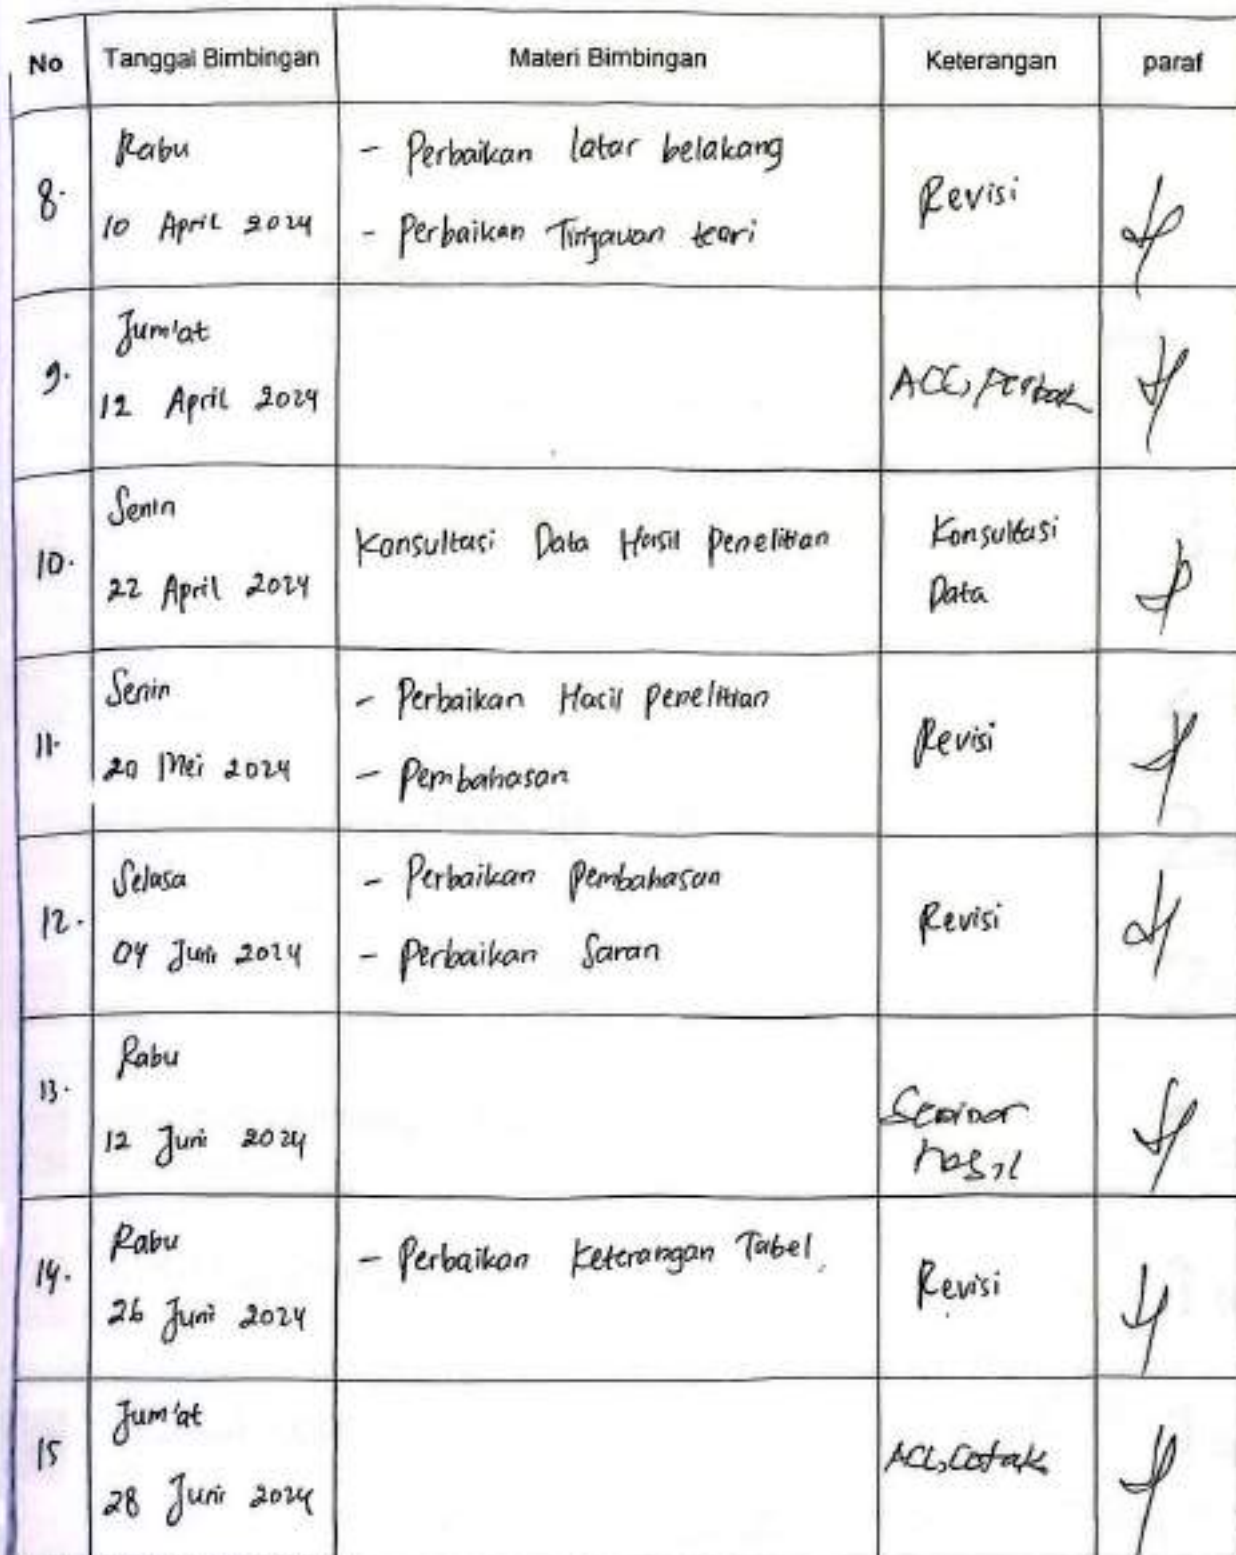 No Tanggal Bimbingan Materi Bimbingan Keterangan paraf
8. Rabu
10 April 2024
- Perbaikan latar belakang
- Perbaikan Tinjauan teori
Revisi
9. Jum'at
12 April 2024
ACC,
10. Senin
22 April 2024
Konsultasi Data Hasil Penelitian
Konsultasi
Data
11. Senin
20 Mei 2024
- Perbaikan Hasil Penelitian
- Pembahasan
Revisi
12. Selasa
04 Juni 2024
- Perbaikan Pembahasan
- Perbaikan Saran
Revisi
13. Rabu
12 Juni 2024
Seminar
Hasil
14. Rabu
26 Juni 2024
- Perbaikan Keterangan Tabel
Revisi
15 Jum'at
28 Juni 2024
ACC, Cetak